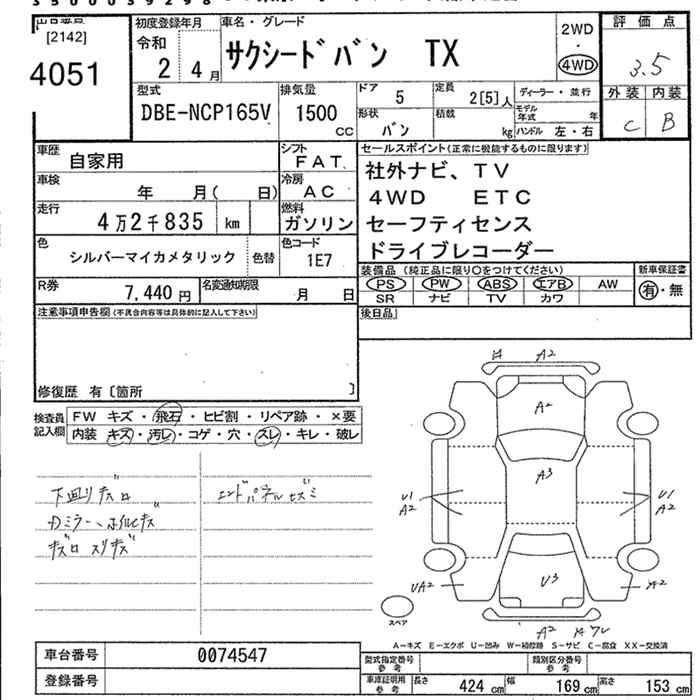 [2142]
4051
初度登録年月
令和
2 4月
車名・グレード
サクシードバン TX
2WD
・
4WD
評価点
3.5
外装 内装
C B
型式
DBE-NCP165V
排気量
1500
CC
ドア 5
形状 バン
定員 2[5]人
積載 kg
ディーラー・並行
モデル年式 年
ハンドル 左・右
車歴 自家用
シフト FAT
車検 年 月( 日)
冷房 AC
走行 4万2千835 km
燃料 ガソリン
色 シルバーマイカメタリック 色替
色コード 1E7
R券 7,440円
名変通知期限 月 日
セールスポイント(正常に機能するものに限ります)
社外ナビ、TV
4WD ETC
セーフティセンス
ドライブレコーダー
装備品(純正品に限り〇をつけてください)
PS PW ABS エアB AW
SR ナビ TV カワ
新車保証書
有・無
後日品
注意事項申告欄(不具合内容等は具体的に記入して下さい)
修復歴 有〔箇所 〕
検査員記入欄
FW キズ・飛石・ヒビ割・リペア跡・×要
内装 キズ・汚レ・コゲ・穴・スレ・キレ・破レ
下廻りサビ
エンドパネルセズミ
A2
A2
A3
U1
A2
U1
A2
UA2
U3
A2
スペア
A2
A-キズ E-エクボ U-凹み W-補修跡 S-サビ C-腐食 XX-交換済
車台番号 0074547
登録番号
型式指定番号 参考
類別区分番号 参考
車庫証明用 参考
長さ 424 cm
幅 169 cm
高さ 153 cm